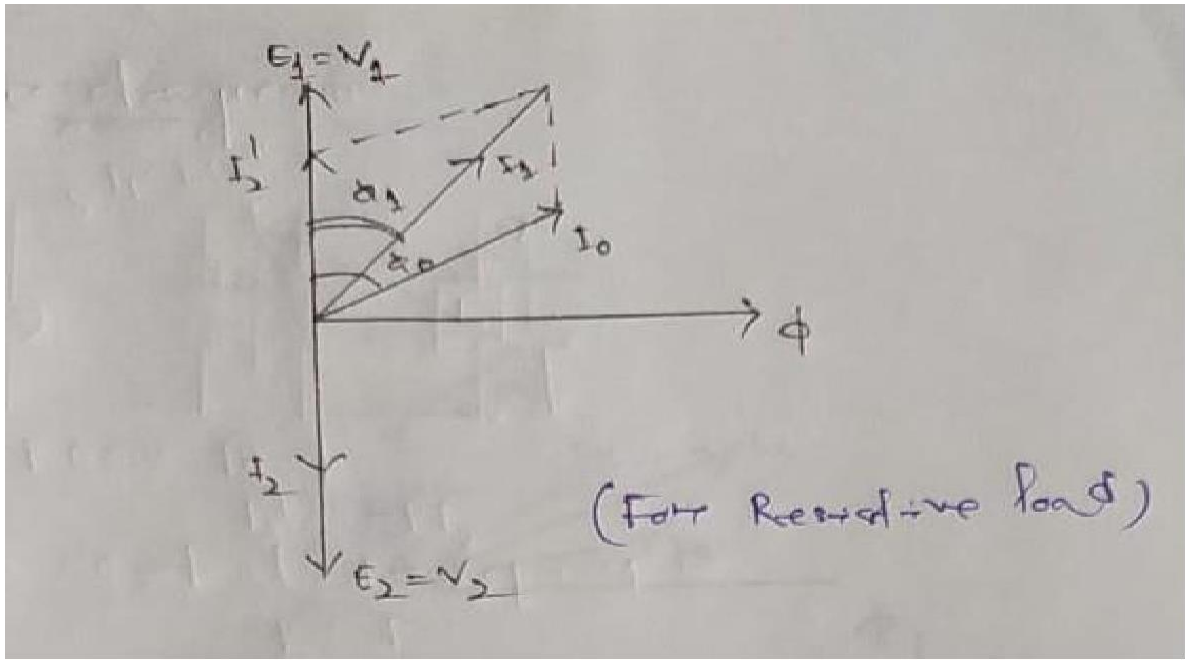 E1 = V1
I2'
I1
φ1
φ0
I0
ϕ
I2
E2 = V2
(For Resistive load)